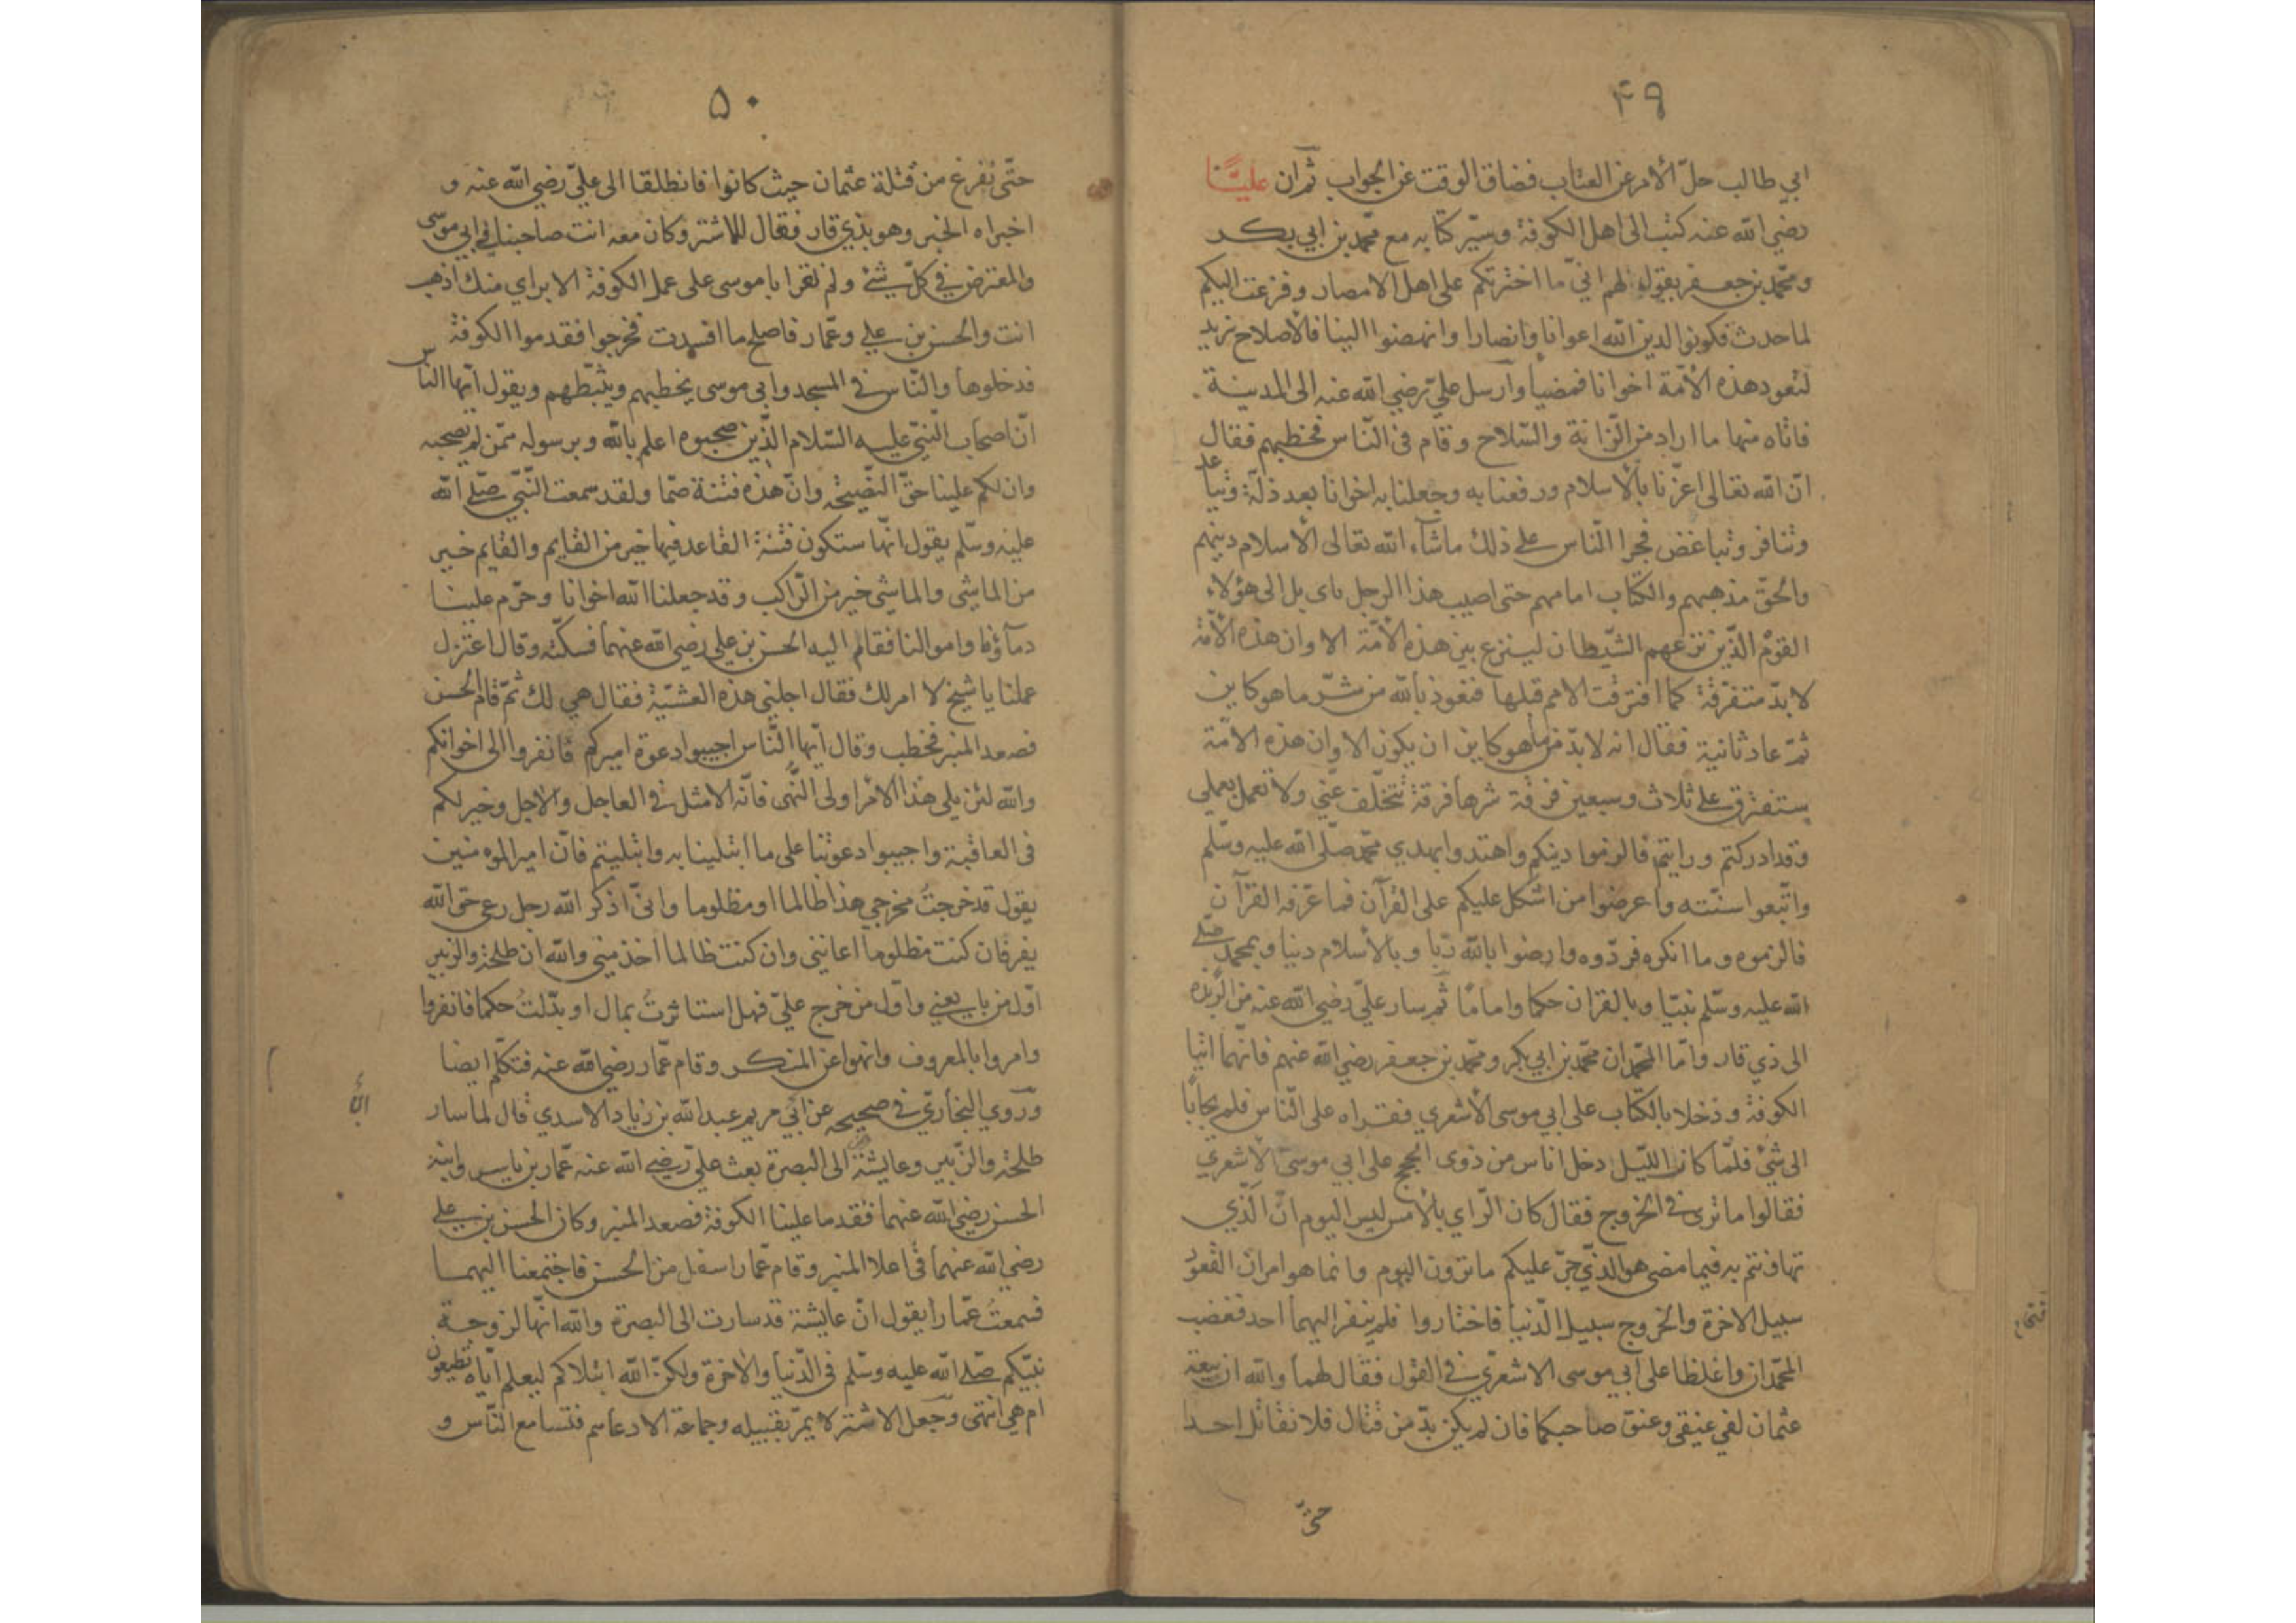 ۴۹
ابي طالب حلّ الأمر عن العتاب فضاق الوقت عن الجواب ثم ان عليّا
رضي الله عنه كتب الى اهل الكوفة وسيّر كتابه مع محمّد بن ابي بكر
ومحمّد بن جعفر يقول لهم انيّ ما اخترتكم على اهل الامصار وفزعت اليكم
لما حدث فكونوا لدين الله اعوانا وانصارا وانهضوا الينا فالأصلاح نريد
لتعود هذه الأمّة اخوانا فمضيا وارسل عليّ رضي الله عنه الى المدينة
فاتاه منها ما اراد من الزانة والسّلاح وقام في النّاس فخطبهم فقال
انّ الله تعالى اعزّنا بالأسلام ورفعنا به وجعلنا به اخوانا بعد ذلّة وتباعد
وتنافر وتباغض فجرا النّاس على ذلك ماشآء الله تعالى الأسلام دينهم
والحقّ مذهبهم والكتاب امامهم حتى اصيب هذا الرجل باى بل الى هؤلاء
القوم الّذين نزعهم الشّيطان لينزع بين هذه الأمّة الا وان هذه الأمّة
لا بدّ متفرّقة كما افترقت الامم قبلها فنعوذ بالله من شرّ ما هو كاين
ثمّ عاد ثانية فقال انه لابدّ من ما هو كاين ان يكون الا وان هذه الامّة
ستفترق على ثلاث وسبعين فرقة شرها فرقة تتخلّف عنّي ولا تعمل بعملي
وقد ادركتم ورايتم فالزموا دينكم واهتدوا بهدي محمّد صلّى الله عليه وسلّم
واتّبعوا سنّته واعرضوا من اشكل عليكم على القرآن فما عرّفه القرآن
فالزموه وما انكره فردّوه وارضوا بالله ربّا وبالأسلام دينا وبمحمد صلى
الله عليه وسلّم نبيّا وبالقران حكما واماما ثم سار عليّ رضي الله عنه من الربذه
الى ذي قار وامّا المحمّدان محمّد بن ابي بكر ومحمّد بن جعفر رضي الله عنهم فانّهما اتيا
الكوفة ودخلا بالكتاب على ابي موسى الأشعري فقراه على النّاس فلم يجابا
الى شئ فلمّا كان اللّيل دخل اناس من ذوى الحجج على ابي موسى الأشعري
فقالوا ما ترى في الخروج فقال كان الرّاي بالأمس ليس اليوم انّ الّذي
تهاونتم به فيما مضى هو الذّي جرّ عليكم ما ترون اليوم وانما هو امران القعود
سبيل الاخرة والخروج سبيل الدّنيا فاختاروا فلم ينفر اليهما احد فغضب
المحمّدان واغلظا على ابي موسى الاشعرّي في القول فقال لهما والله ان بيعة
عثمان لفي عنيقي وعنق صاحبكما فان لم يكن بدّ من قتال فلا نقاتل احدا
حتّى
۵۰
حتّى نفرغ من قتلة عثمان حيث كانوا فانطلقا الى عليّ رضي الله عنه و
اخبراه الخبر وهو بذي قار فقال للاشتر وكان معه انت صاحبنا في ابي موسى
والمعترض في كلّ شئ ولم تقر ابا موسى على عمل الكوفة الا براي منك اذهب
انت والحسن بن علي وعمّار فاصلح ما افسدت فخرجوا فقدموا الكوفة
فدخلوها والنّاس في المسجد وابي موسى يخطبهم ويثبّطهم ويقول ايّها الناس
انّ اصحاب النّبيّ عليه السّلام الّذين صحبوه اعلم بالله وبرسوله ممّن لم يصحبه
وان لكم علينا حقّ النّصيحة وانّ هذه فتنة صمّا ولقد سمعت النّبيّ صلّى الله
عليه وسلّم يقول انّها ستكون فتنة القاعد فيها خير من القايم والقايم خير
من الماشي والماشي خير من الرّاكب وقد جعلنا الله اخوانا وحرّم علينا
دمآؤنا واموالنا فقام اليه الحسن بن علي رضي الله عنهما فسكّته وقال اعتزل
عملنا يا شيخ لا ام لك فقال اجلني هذه العشيّة فقال هي لك ثمّ قام الحسن
فصعد المنبر فخطب وقال ايّها النّاس اجيبوا دعوة اميركم فانفروا الى اخوانكم
والله لئن يلي هذا الأمر اولى النّهى فانّه الامثل في العاجل والاجل وخير لكم
في العاقبة واجيبوا دعوتنا على ما ابتلينا به وابتليتم فانّ امير المومنين
يقول قد خرجت مخرجي هذا ظالما او مظلوما وانّي اذكر الله رجل رعى حق الله
يفر فان كنت مظلوما اعانني وان كنت ظالما اخذ مني والله ان طلحة والزبير
اوّل من بايعني واوّل من خرج عليّ فهل استاثرت بمال او بدّلت حكما فانفروا
وامروا بالمعروف وانهوا عن المنكر وقام عمّار رضي الله عنه فتكلّم ايضا
وروي البخاريّ في صحيحه عن ابي مريم عبد الله بن زياد الاسدي قال لما سار
طلحة والزّبير وعايشة الى البصرة بعث عليّ رضي الله عنه عمّار بن ياسر وابنه
الحسن رضي الله عنهما فقدما علينا الكوفة فصعد المنبر وكان الحسن بن علي
رضي الله عنهما في اعلا المنبر وقام عمّار اسفل من الحسن فاجتمعنا اليهما
فسمعت عمّارا يقول انّ عايشة قد سارت الى البصرة والله انّها لزوجة
نبيّكم صلّى الله عليه وسلّم في الدّنيا والاخرة ولكنّ الله ابتلاكم ليعلم ايّاه تطيعون
ام هي انتهى وجعل الاشتر لا يمرّ بقبيله وجماعة الا دعاهم فتسامع النّاس و